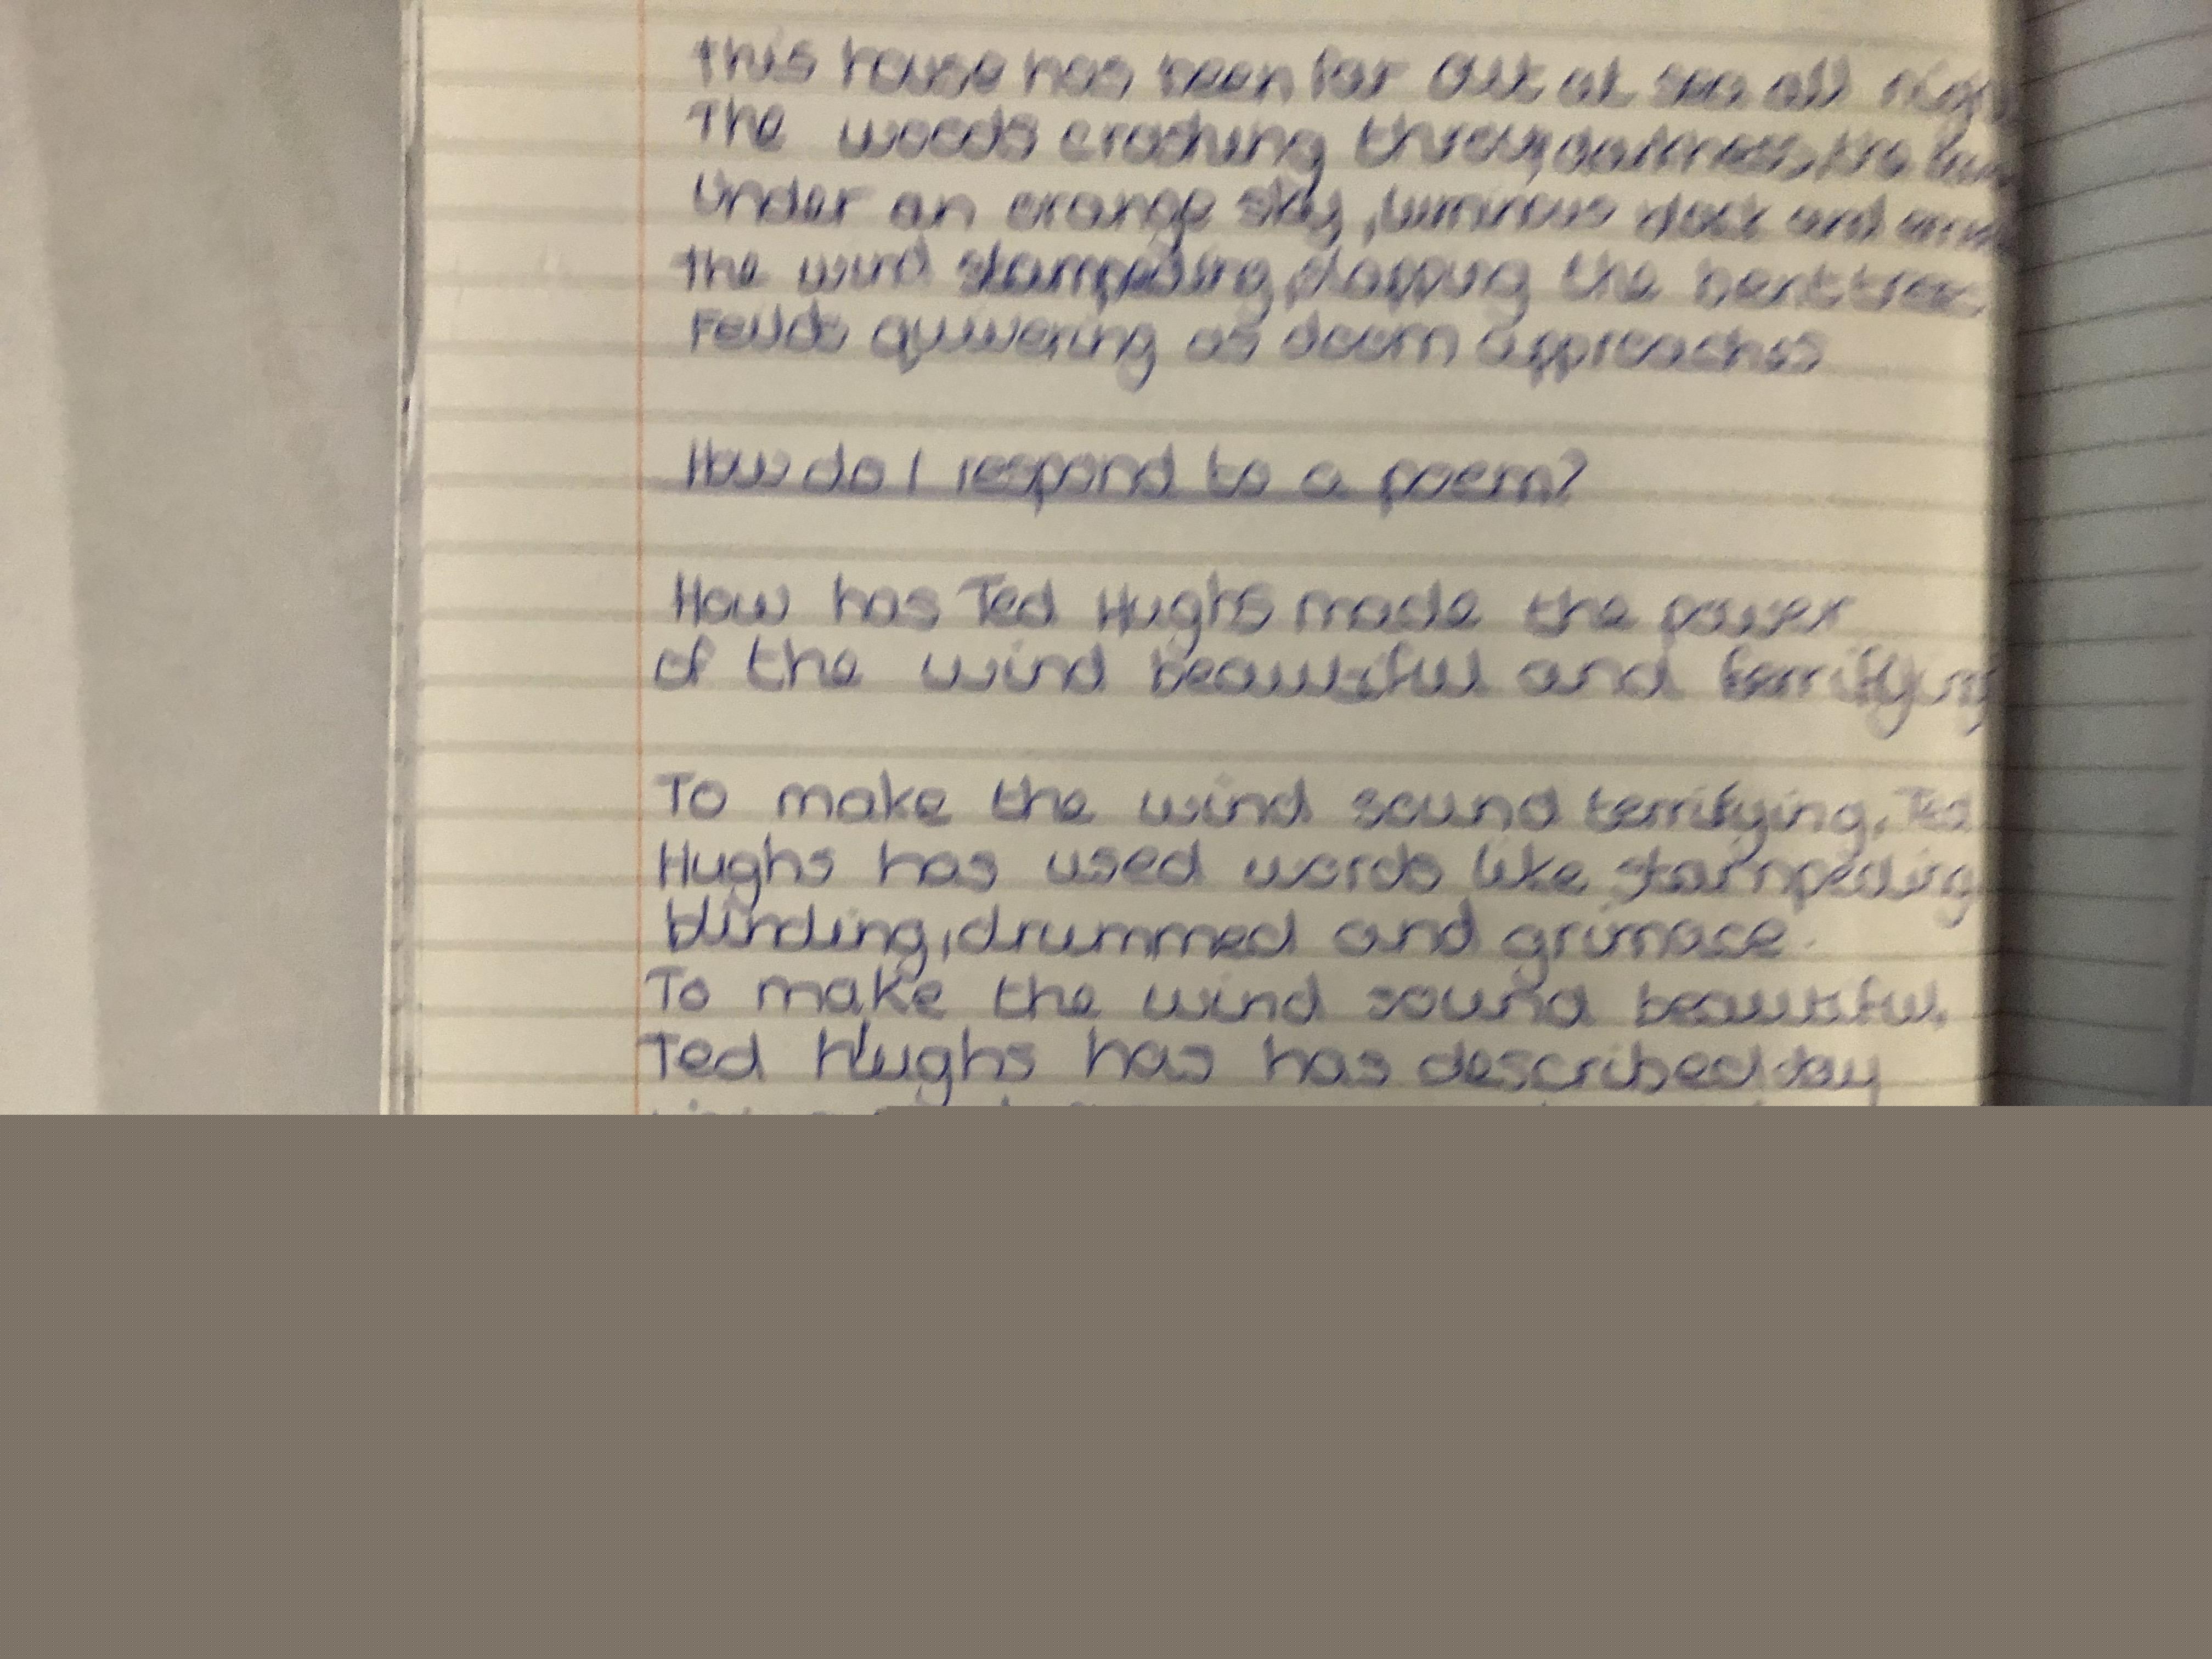 This house has been far out at sea all
The woods crashing through darkness, the
Under an orange sky, luminous black and
The wind stampeding, flapping the bent trees
Feilds quivering as doom approaches
How do I respond to a poem?
How has Ted Hughs made the power
of the wind beautiful and terrifying
To make the wind sound terrifying, Ted
Hughs has used words like stampeding
blinding, drummed and grimace.
To make the wind sound beautiful,
Ted Hughs has has described day